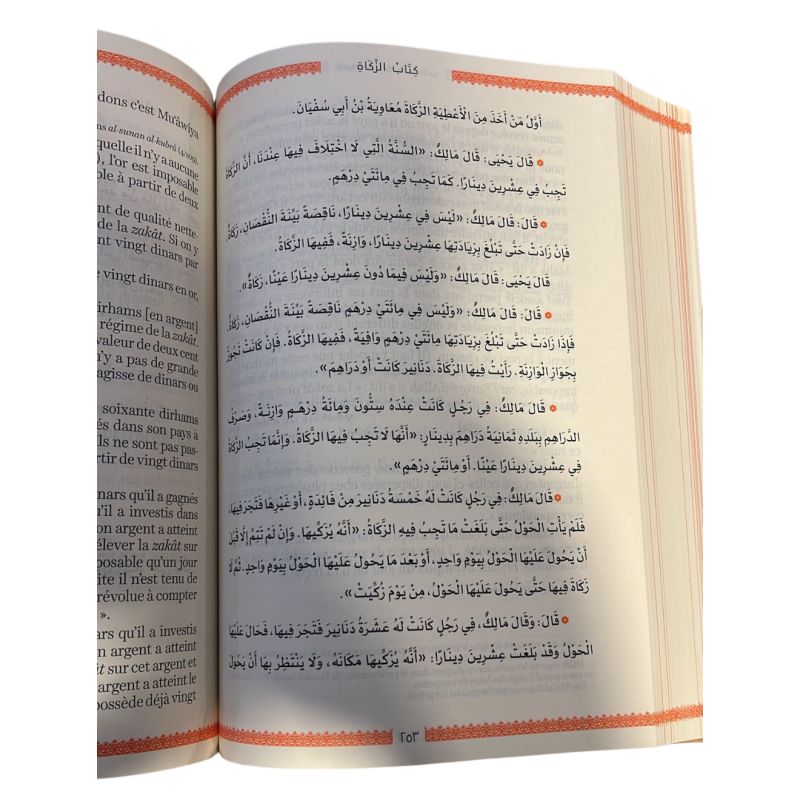 dons c'est Mu'âwiya
ns al-sunan al-kubrâ (4/109).
quelle il n'y a aucune
), l'or est imposable
ble à partir de deux
nt de qualité nette.
de la zakât. Si on y
nt vingt dinars par
e vingt dinars en or,
dirhams [en argent]
régime de la zakât.
valeur de deux cent
n'y a pas de grande
agisse de dinars ou
soixante dirhams
és dans son pays à
lls ne sont pas pas-
rtir de vingt dinars
nars qu'il a gagnés
s'il a investis dans
on argent a atteint
élever la zakât sur
posable qu'un jour
ite il n'est tenu de
révolue à compter
».
ars qu'il a investis
n argent a atteint
ât sur cet argent et
argent a atteint le
possède déjà vingt
كِتَابُ الزَّكَاةِ
أَوَّلُ مَنْ أَخَذَ مِنَ الْأَعْطِيَةِ الزَّكَاةَ مُعَاوِيَةُ بْنُ أَبِي سُفْيَانَ.
قَالَ يَحْيَى: قَالَ مَالِكٌ: «السُّنَّةُ الَّتِي لَا اخْتِلَافَ فِيهَا عِنْدَنَا، أَنَّ الزَّكَاةَ
تَجِبُ فِي عِشْرِينَ دِينَارًا. كَمَا تَجِبُ فِي مِائَتَيْ دِرْهَمٍ.
قَالَ: قَالَ مَالِكٌ: «لَيْسَ فِي عِشْرِينَ دِينَارًا، نَاقِصَةً بَيِّنَةَ النُّقْصَانِ، زَكَاةٌ.
فَإِنْ زَادَتْ حَتَّى تَبْلُغَ بِزِيَادَتِهَا عِشْرِينَ دِينَارًا، وَازِنَةً، فَفِيهَا الزَّكَاةُ.
قَالَ يَحْيَى: قَالَ مَالِكٌ: «وَلَيْسَ فِيمَا دُونَ عِشْرِينَ دِينَارًا عَيْنًا، زَكَاةٌ».
قَالَ: قَالَ مَالِكٌ: «وَلَيْسَ فِي مِائَتَيْ دِرْهَمٍ نَاقِصَةً بَيِّنَةَ النُّقْصَانِ، زَكَاةٌ.
فَإِذَا زَادَتْ حَتَّى تَبْلُغَ بِزِيَادَتِهَا مِائَتَيْ دِرْهَمٍ وَافِيَةً، فَفِيهَا الزَّكَاةُ. فَإِنْ كَانَتْ تَجُوزُ
بِجَوَازِ الْوَازِنَةِ. رَأَيْتُ فِيهَا الزَّكَاةَ. دَنَانِيرَ كَانَتْ أَوْ دَرَاهِمَ».
قَالَ مَالِكٌ: فِي رَجُلٍ كَانَتْ عِنْدَهُ سِتُّونَ وَمِائَةُ دِرْهَمٍ وَازِنَةً، وَصَرْفُ
الدَّرَاهِمِ بِبَلَدِهِ ثَمَانِيَةُ دَرَاهِمَ بِدِينَارٍ: «أَنَّهَا لَا تَجِبُ فِيهَا الزَّكَاةُ. وَإِنَّمَا تَجِبُ الزَّكَاةُ
فِي عِشْرِينَ دِينَارًا عَيْنًا. أَوْ مِائَتَيْ دِرْهَمٍ».
قَالَ مَالِكٌ: فِي رَجُلٍ كَانَتْ لَهُ خَمْسَةُ دَنَانِيرَ مِنْ فَائِدَةٍ، أَوْ غَيْرِهَا فَتَجَرَ فِيهَا،
فَلَمْ يَأْتِ الْحَوْلُ حَتَّى بَلَغَتْ مَا تَجِبُ فِيهِ الزَّكَاةُ: «أَنَّهُ يُزَكِّيهَا. وَإِنْ لَمْ تَتِمَّ إِلَّا قَبْلَ
أَنْ يَحُولَ عَلَيْهَا الْحَوْلُ بِيَوْمٍ وَاحِدٍ، أَوْ بَعْدَ مَا يَحُولُ عَلَيْهَا الْحَوْلُ بِيَوْمٍ وَاحِدٍ. ثُمَّ لَا
زَكَاةَ فِيهَا حَتَّى يَحُولَ عَلَيْهَا الْحَوْلُ، مِنْ يَوْمَ زُكِّيَتْ».
قَالَ: وَقَالَ مَالِكٌ، فِي رَجُلٍ كَانَتْ لَهُ عَشَرَةُ دَنَانِيرَ فَتَجَرَ فِيهَا، فَحَالَ عَلَيْهَا
الْحَوْلُ وَقَدْ بَلَغَتْ عِشْرِينَ دِينَارًا: «أَنَّهُ يُزَكِّيهَا مَكَانَهُ، وَلَا يَنْتَظِرُ بِهَا أَنْ يَحُولَ
٢٥٣